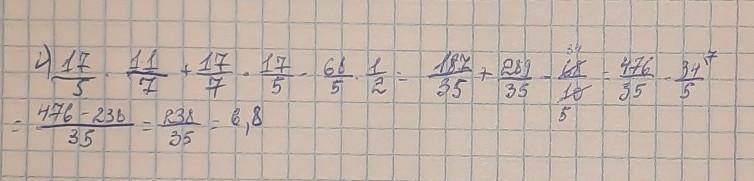 г) 17/5 · 11/7 + 17/7 · 17/5 - 68/5 · 1/2 = 187/35 + 289/35 - 68 34/10 5 = 476/35 - 34/5 7
= 476 - 238/35 = 238/35 = 6,8